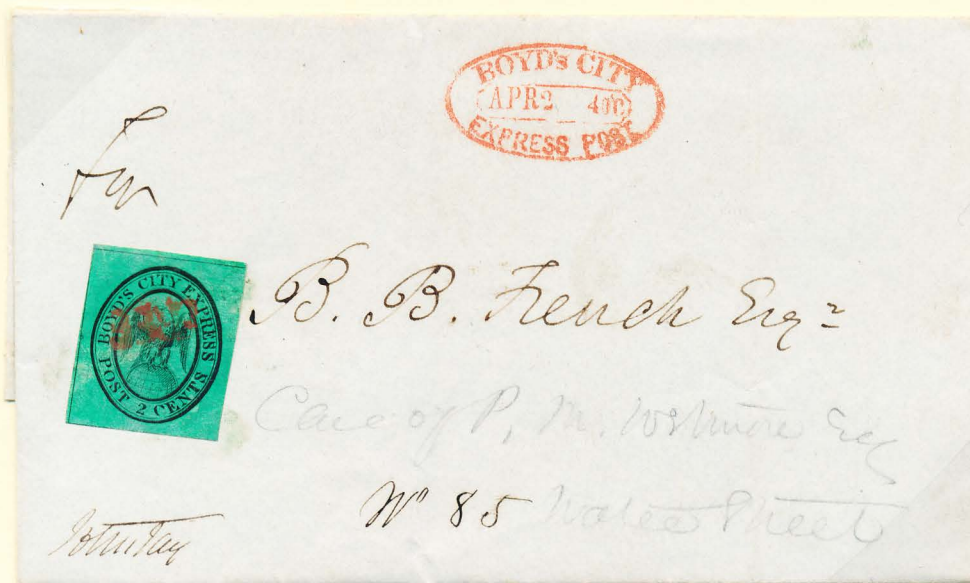 BOYD'S CITY
APR 2 4 O'C
EXPRESS POST
For
BOYD'S CITY EXPRESS
POST 2 CENTS
B. B. French Esqr
Care of P. M. Wetmore Esq
No 85 Water Street